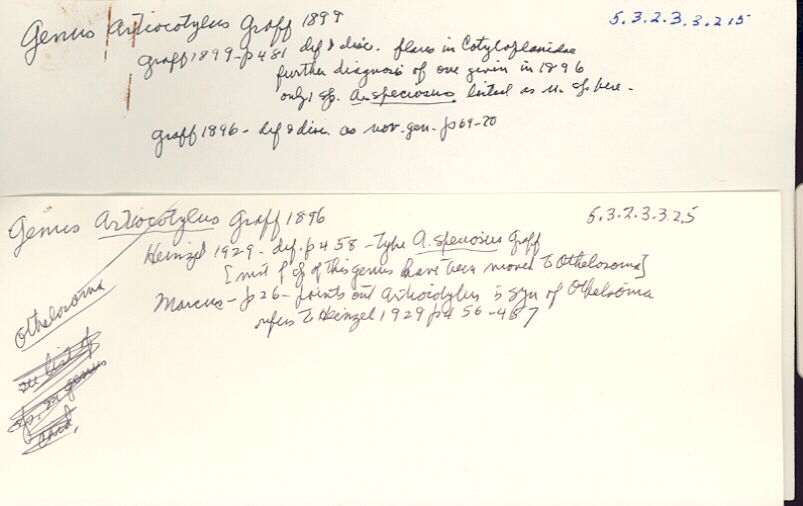 Genus Artiocotylus Graff 1899
5.3.2.3.3.2 15
Graff 1899 - p 481 def & disc. places in Cotyloplanidae
further diagnosis of one given in 1896
only sp. A. speciosus listed as n. sp here.
Graff 1896 - def & disc. as nov. gen. p 69-70
Genus Artiocotylus Graff 1896
5.3.2.3.3.25
Heinzel 1929 - def. p 458 - type A. speciosus Graff
[most of sp of this genus have been moved to Othelosoma]
Marcus - p 26 - points out Artiocotylus is syn of Othelosoma
refers to Heinzel 1929 p 456-457
Othelosoma
see list of
sp. on genus
card.